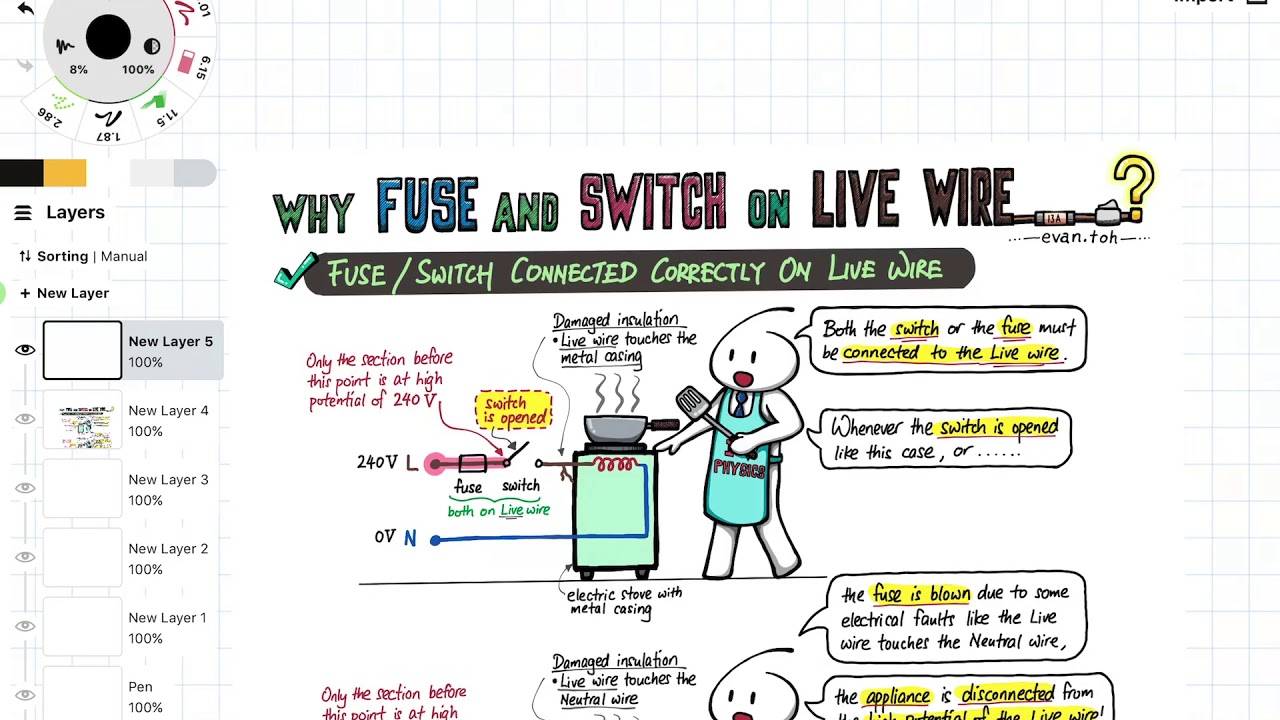 Import
.01
6.15
8%
100%
11.5
1.87
2.86
Layers
Sorting | Manual
+ New Layer
New Layer 5
100%
New Layer 4
100%
New Layer 3
100%
New Layer 2
100%
New Layer 1
100%
Pen
100%
WHY FUSE AND SWITCH ON LIVE WIRE ?
13A
evan.toh
FUSE / SWITCH CONNECTED CORRECTLY ON LIVE WIRE
Damaged insulation
• Live wire touches the
metal casing
Only the section before
this point is at high
potential of 240 V
switch
is opened
240V L
fuse switch
both on Live wire
0V N
electric stove with
metal casing
PHYSICS
Both the switch or the fuse must
be connected to the Live wire.
Whenever the switch is opened
like this case, or ......
the fuse is blown due to some
electrical faults like the Live
wire touches the Neutral wire,
Damaged insulation
• Live wire touches the
Neutral wire
Only the section before
this point is at high
the appliance is disconnected from
the high potential of the Live wire!